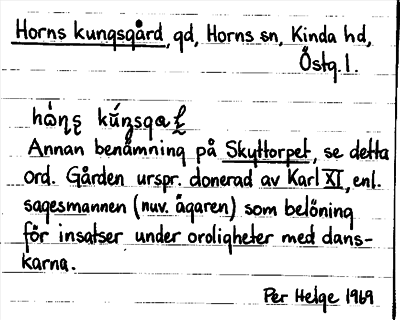 Horns kungsgård, gd, Horns sn, Kinda hd,
Östg. l.
Annan benämning på Skyttorpet, se detta
ord. Gården urspr. donerad av Karl XI, enl.
sagesmannen (nuv. ägaren) som belöning
för insatser under oroligheter med dans-
karna.
Per Helge 1969